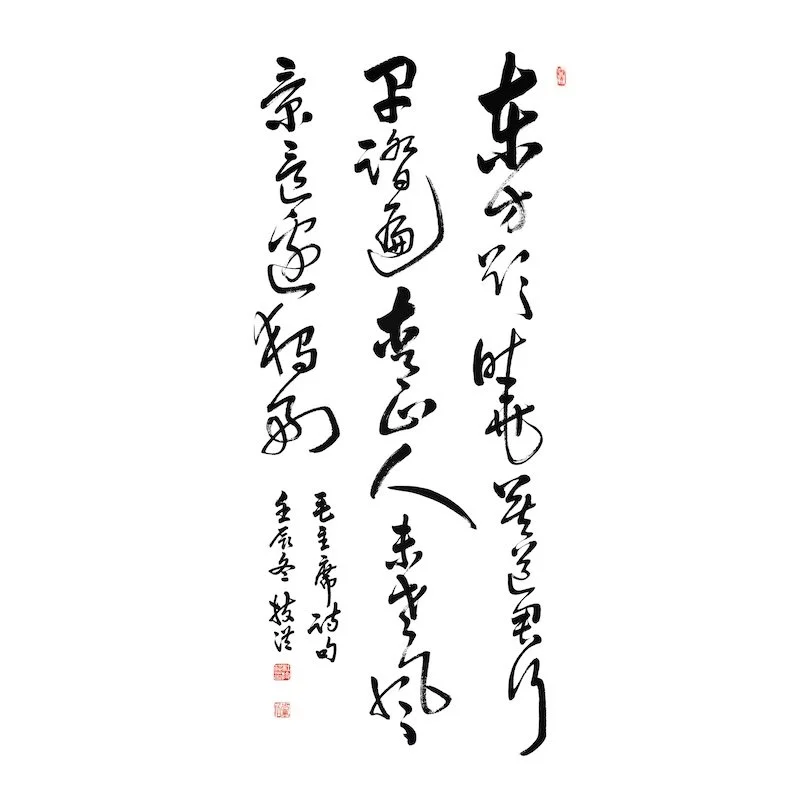 东方欲晓莫道君行
早踏遍青山人未老风
景这边独好
毛主席诗句
壬辰冬